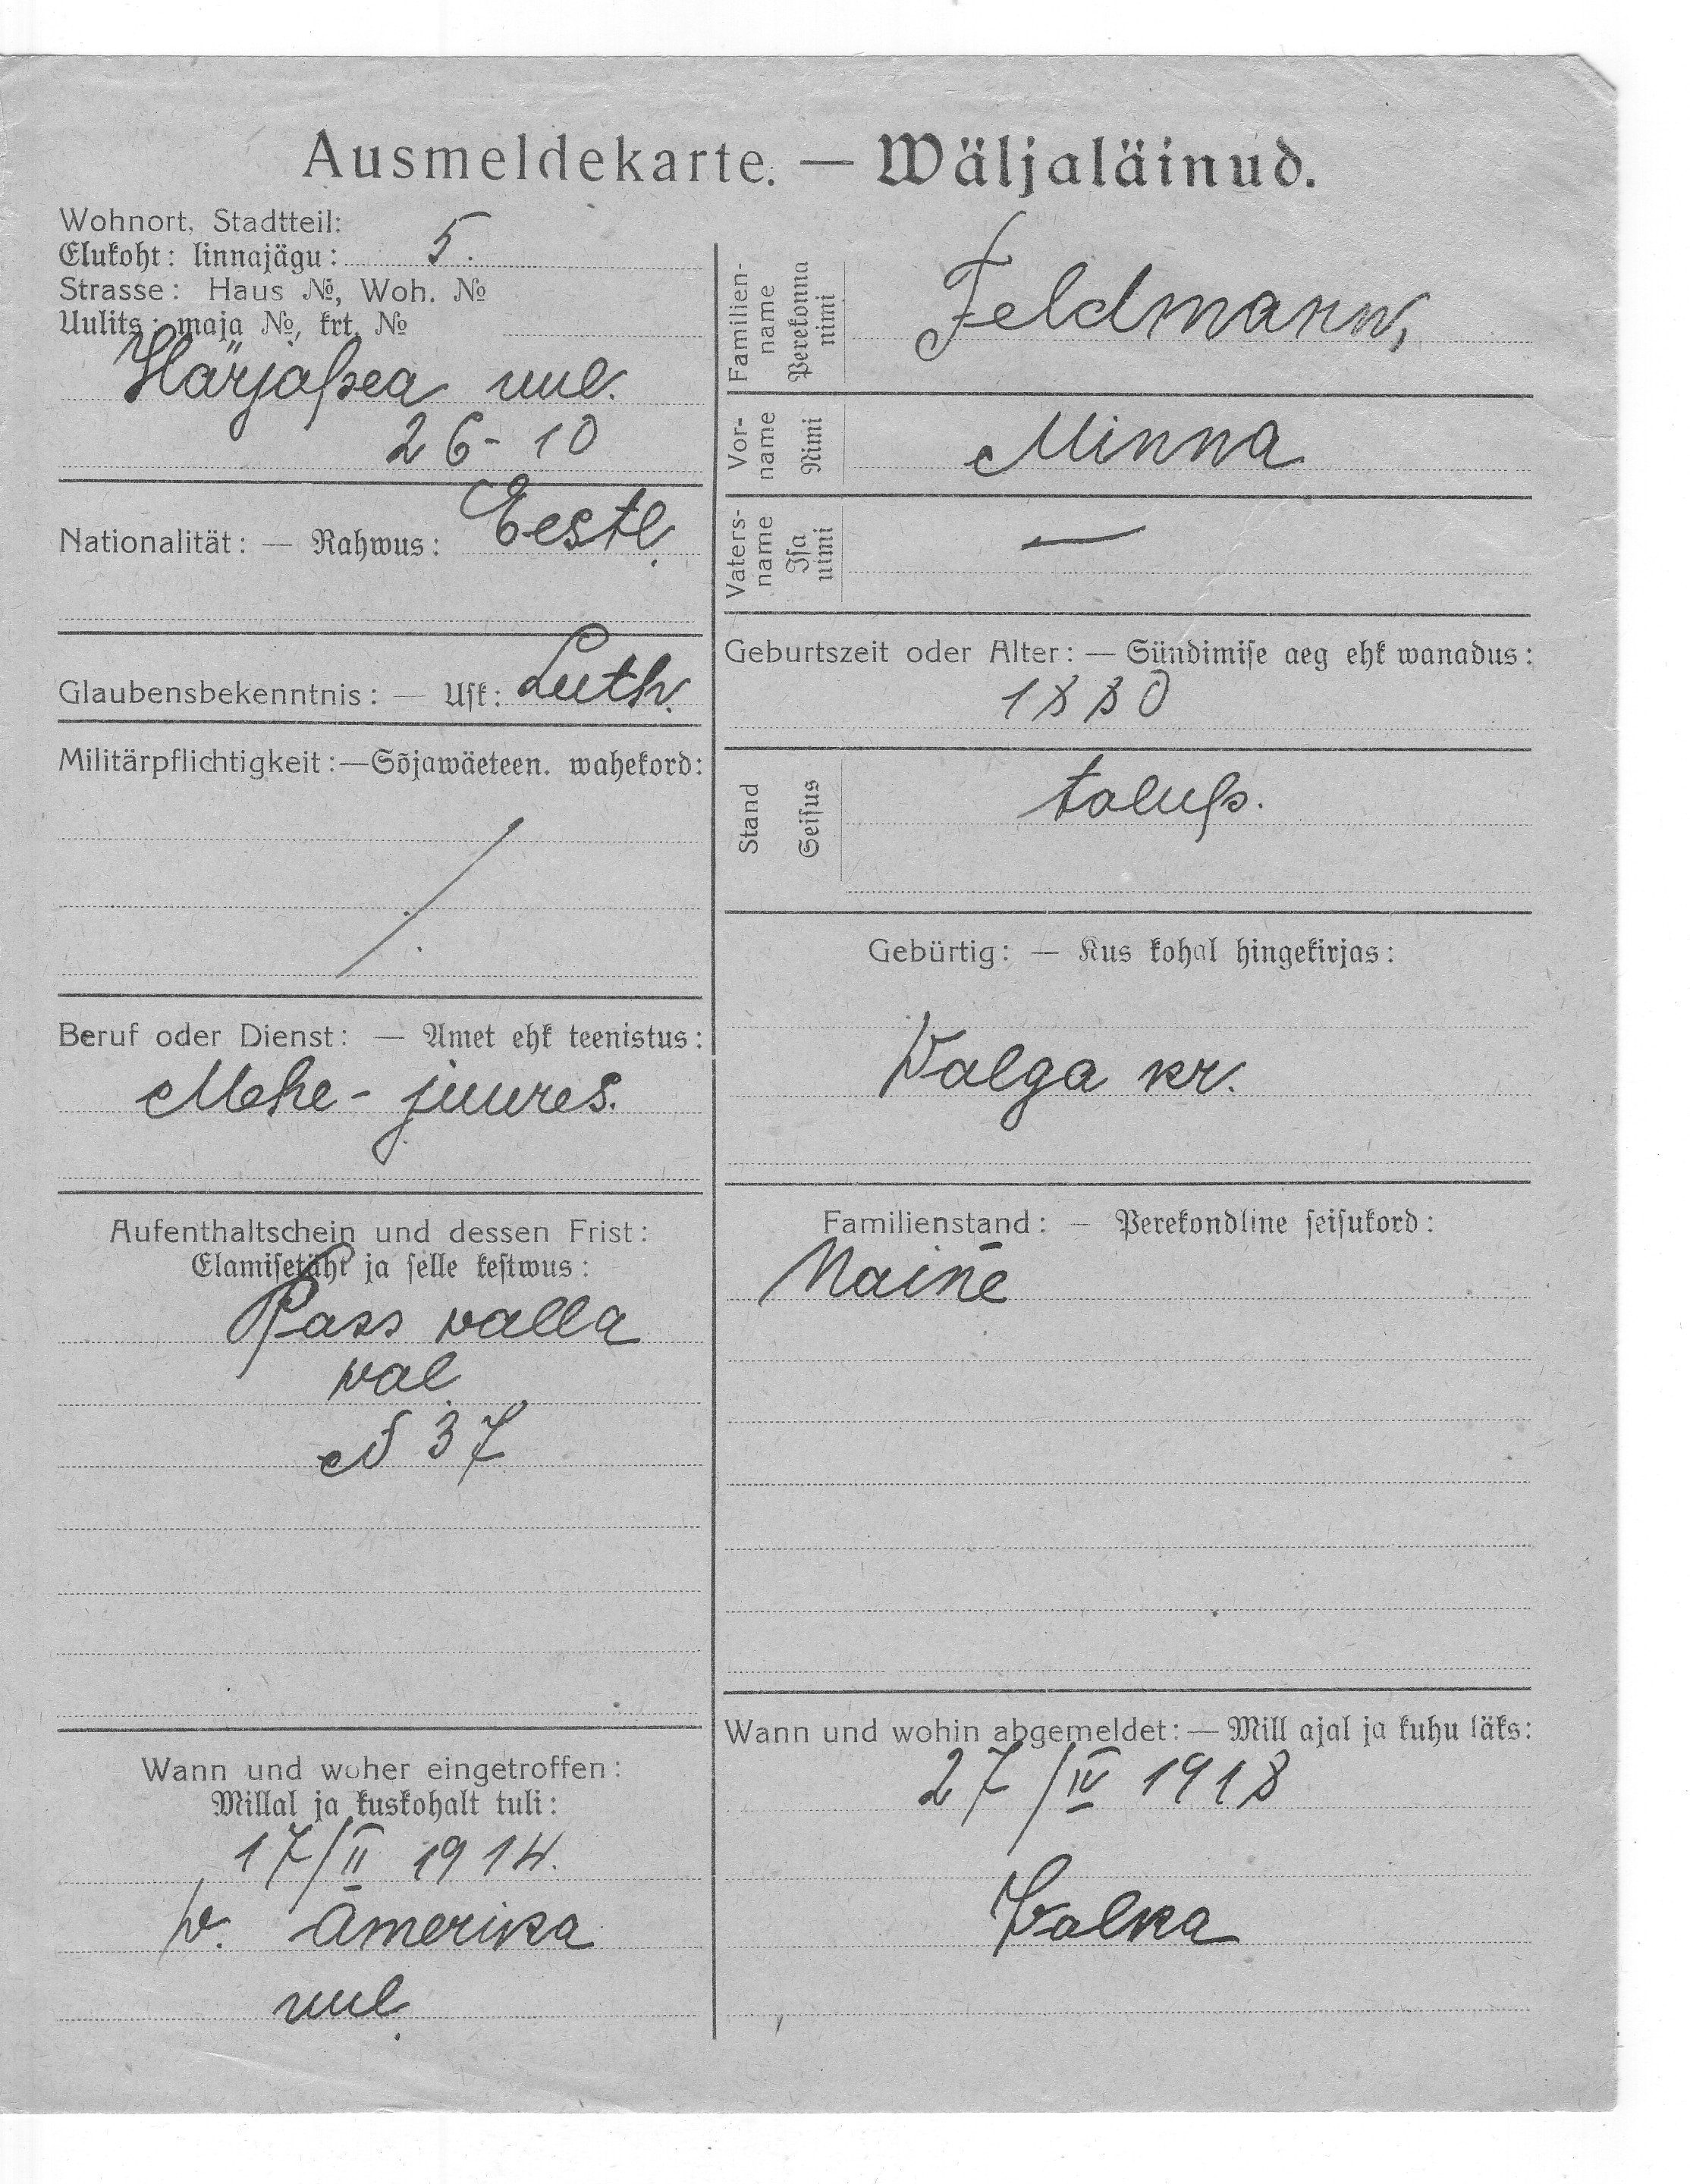 Ausmeldekarte. — Wäljaläinud.
Wohnort, Stadtteil:
Elukoht: linnajägu: 5.
Strasse: Haus №, Woh. №
Uulits: maja №, krt. №
Härjapea uul.
26-10
Nationalität: — Rahwus: Eestl.
Glaubensbekenntnis: — Usk: Luth.
Militärpflichtigkeit: — Sõjawäeteen. wahekord:
Beruf oder Dienst: — Amet ehk teenistus:
Mehe-juures.
Aufenthaltschein und dessen Frist:
Elamisetäht ja selle kestwus:
Pass walla
wal.
№ 37
Wann und woher eingetroffen:
Millal ja kuskohalt tuli:
17/II 1914.
W. Amerika
uul.
Familien-
name
Perekonna
nimi
Feldmann,
Vor-
name
Nimi
Minna
Vaters-
name
Isa
nimi
—
Geburtszeit oder Alter: — Sündimise aeg ehk wanadus:
1880
Stand
Seisus
talup.
Gebürtig: — Kus kohal hingekirjas:
Walga kr.
Familienstand: — Perekondline seisukord:
Naine
Wann und wohin abgemeldet: — Mill ajal ja kuhu läks:
27/IV 1918
Walka